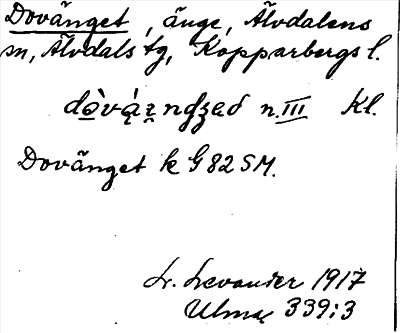 Dovänget, änge, Älvdalens
sn, Älvdals tg, Kopparbergs l.
n. III Kl.
Dovänget k G 82 SM.
L. Levander 1917
Ulma 339:3